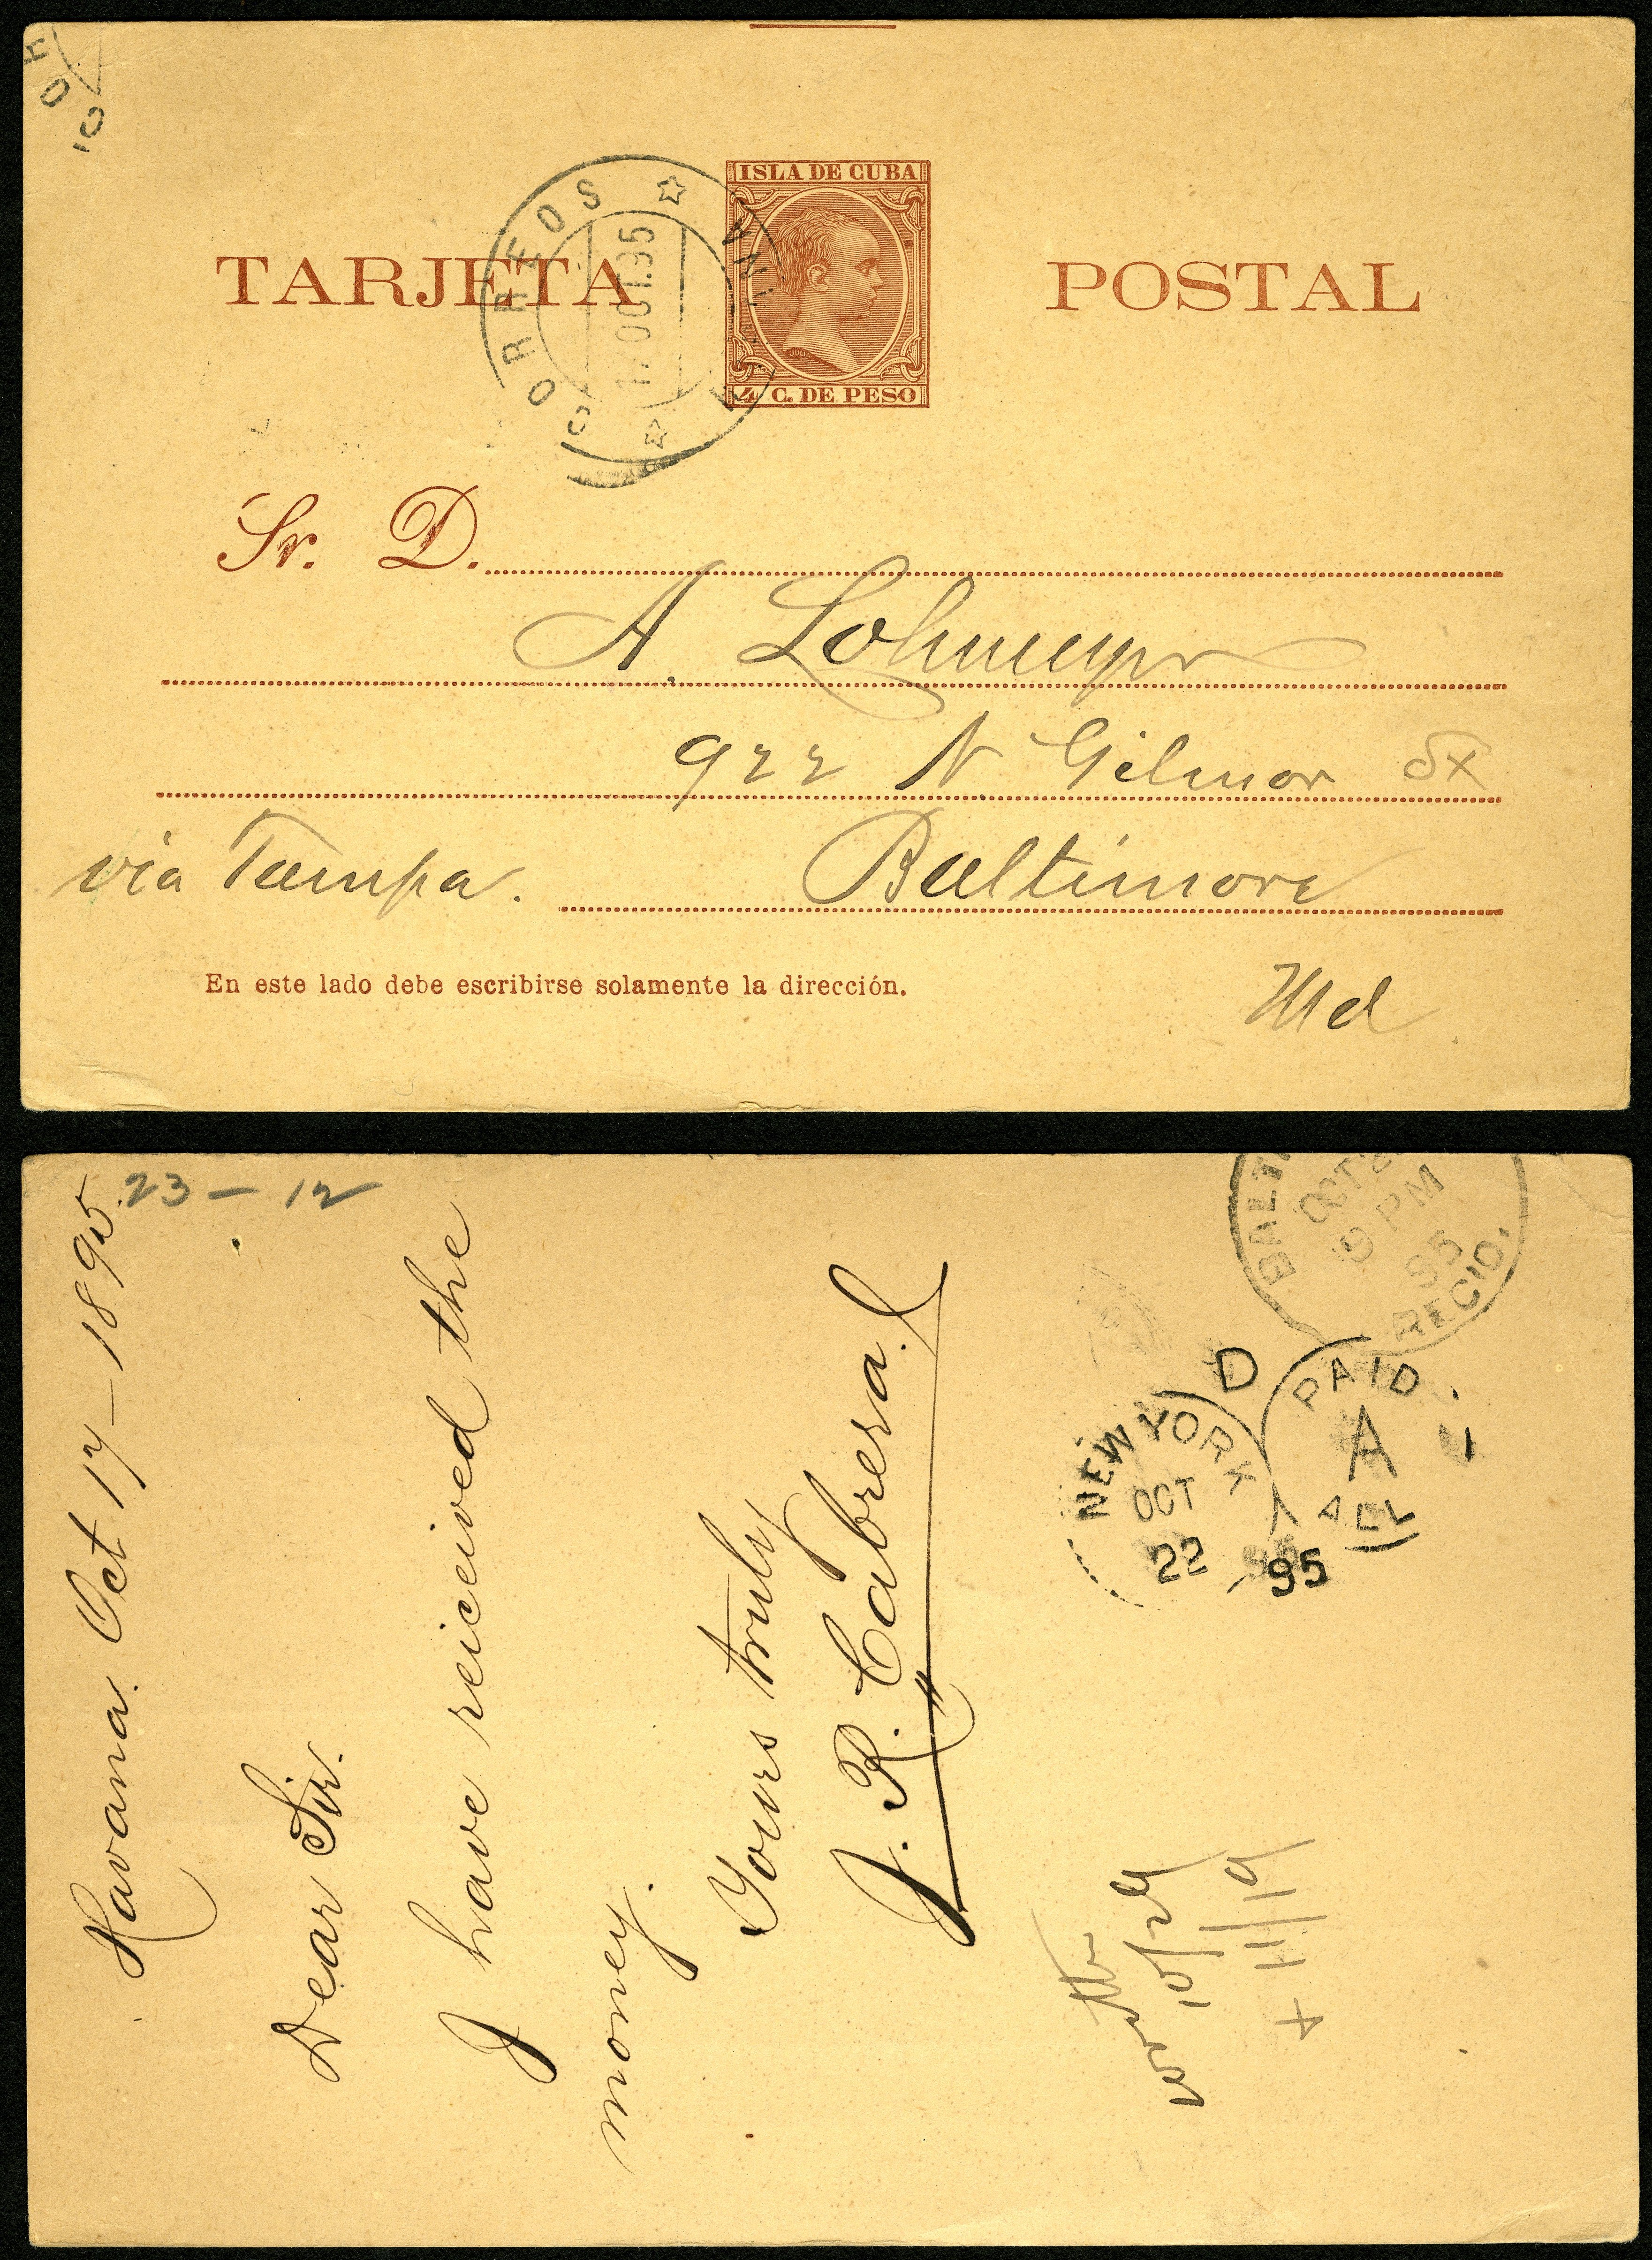 ISLA DE CUBA
TARJETA POSTAL
CORREOS
17 OCT. 95
4 C. DE PESO
Sr. D.
A. Lohmeyer
922 N. Gilmor St
via Tampa. Baltimore
En este lado debe escribirse solamente la dirección.
Md
23 - 12
Havana. Oct 17 - 1895.
Dear Sir.
I have reiceived the
money.
Yours truly
J. R. Cabrera.
OCT
9 PM
95
REC'D.
D
NEW YORK
OCT
22
95
PAID
A
ALL
10/29
+ 11/19